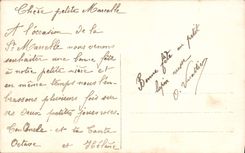 Chère petite Marcelle
A l'occasion de la
St Marcelle nous venons
souhaiter une bonne fête
à notre petite nièce et
en même temps nous t'em-
brassons plusieurs fois sur
tes deux petites joues roses
Ton Oncle et ta Tante
Octave et Hélène
Bonne fête au petit